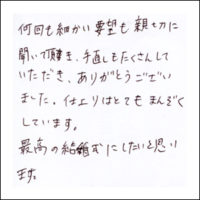 何回も細かい要望も親切に
聞いて頂き、手直しもたくさんして
いただき、ありがとうござい
ました。仕上りはとてもまんぞく
しています。
最高の結婚式にしたいと思い
ます。